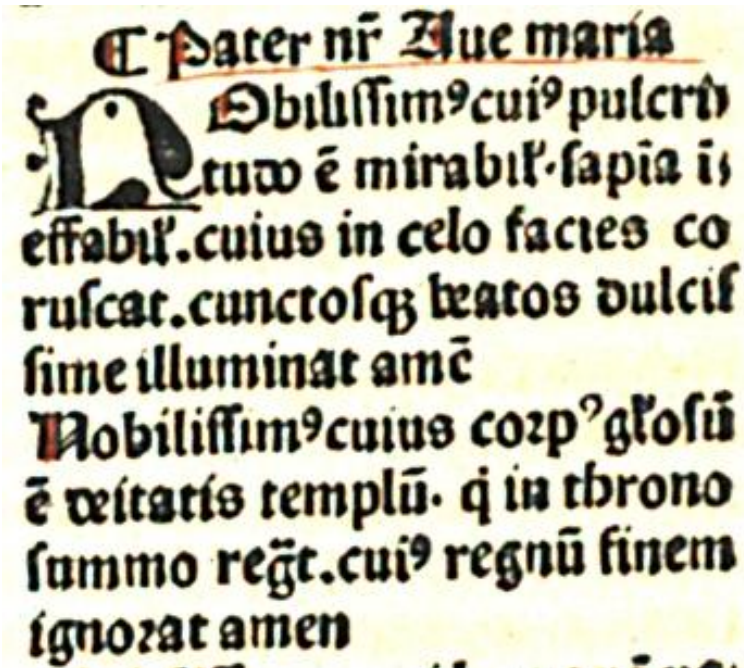 ¶ Pater nr̃ Aue maria
NObiliſſimꝰ cuiꝰ pulcri
tudo ē mirabilꝭ. ſapīa ī
effabilꝭ. cuius in celo facies co
ruſcat. cunctoſqꝫ beatos dulciſ
ſime illuminat amē
Nobiliſſimꝰ cuius coꝛpꝰ gꝉoſū
ē deitatis templū. q̇ in throno
ſummo reg̃t. cuiꝰ regnū finem
ignoꝛat amen